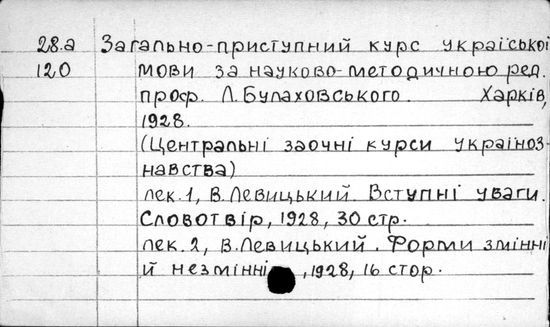 28.а Загально-приступний курс украі́ської
120 мови за науково-методичною ред.
проф. Л. Булаховського. Харків,
1928.
(Центральні заочні курси україноз-
навства)
лек. 1, В. Левицький. Вступні уваги.
Словотвір, 1928, 30 стр.
лек. 2, В. Левицький. Форми змінні
й незмінні, 1928, 16 стор.